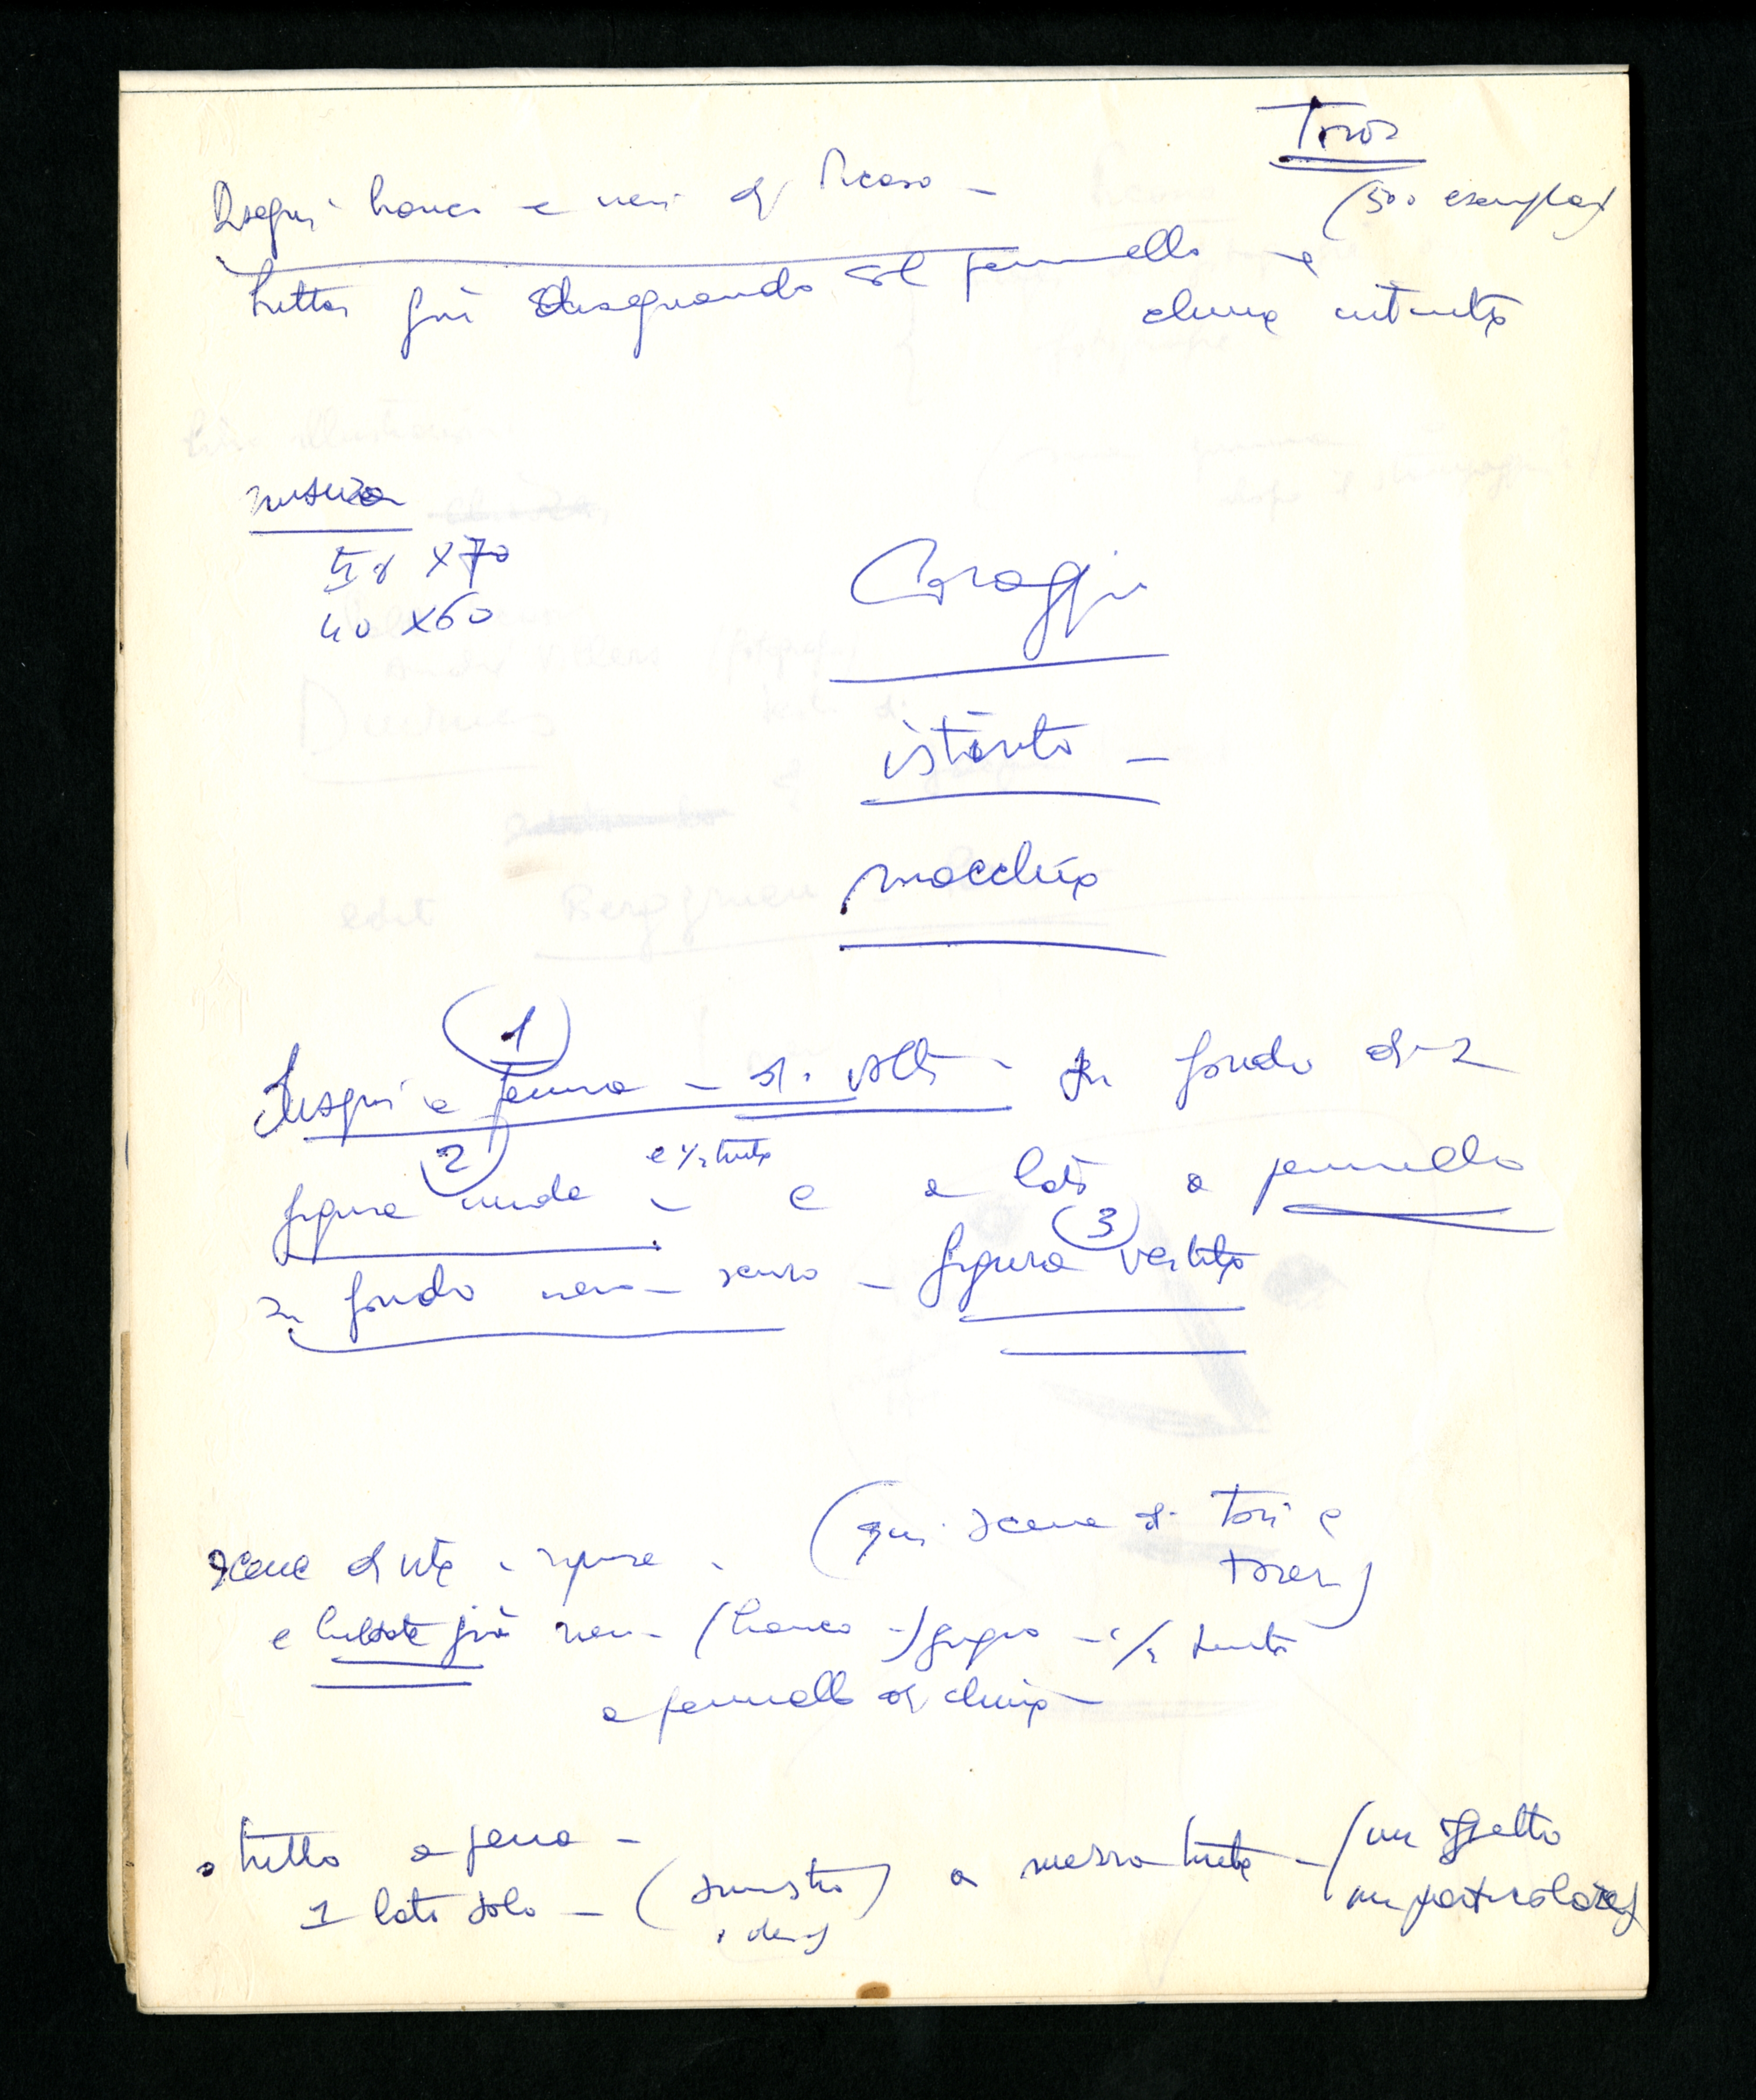 Toros
(500 esemplari)
Disegni bianchi e neri di Picasso –
buttar giù disegnando col pennello e
china intinto
misura
50 x 70
40 x 60
Coraggio
istinto –
macchia
1
disegni a penna – di volti – su fondo
2
figura nuda – e 1/2 tinta e a lato a pennello
3
su fondo nero scuro – figura vestita
scene di vita (qui scene di tori e
toreri)
e buttate giù nero – (bianco –) grigio – 1/2 tinta
a pennello di china –
tutto a penna –
1 lato solo – (sinistro) a mezza tinta – (un oggetto
un particolare)